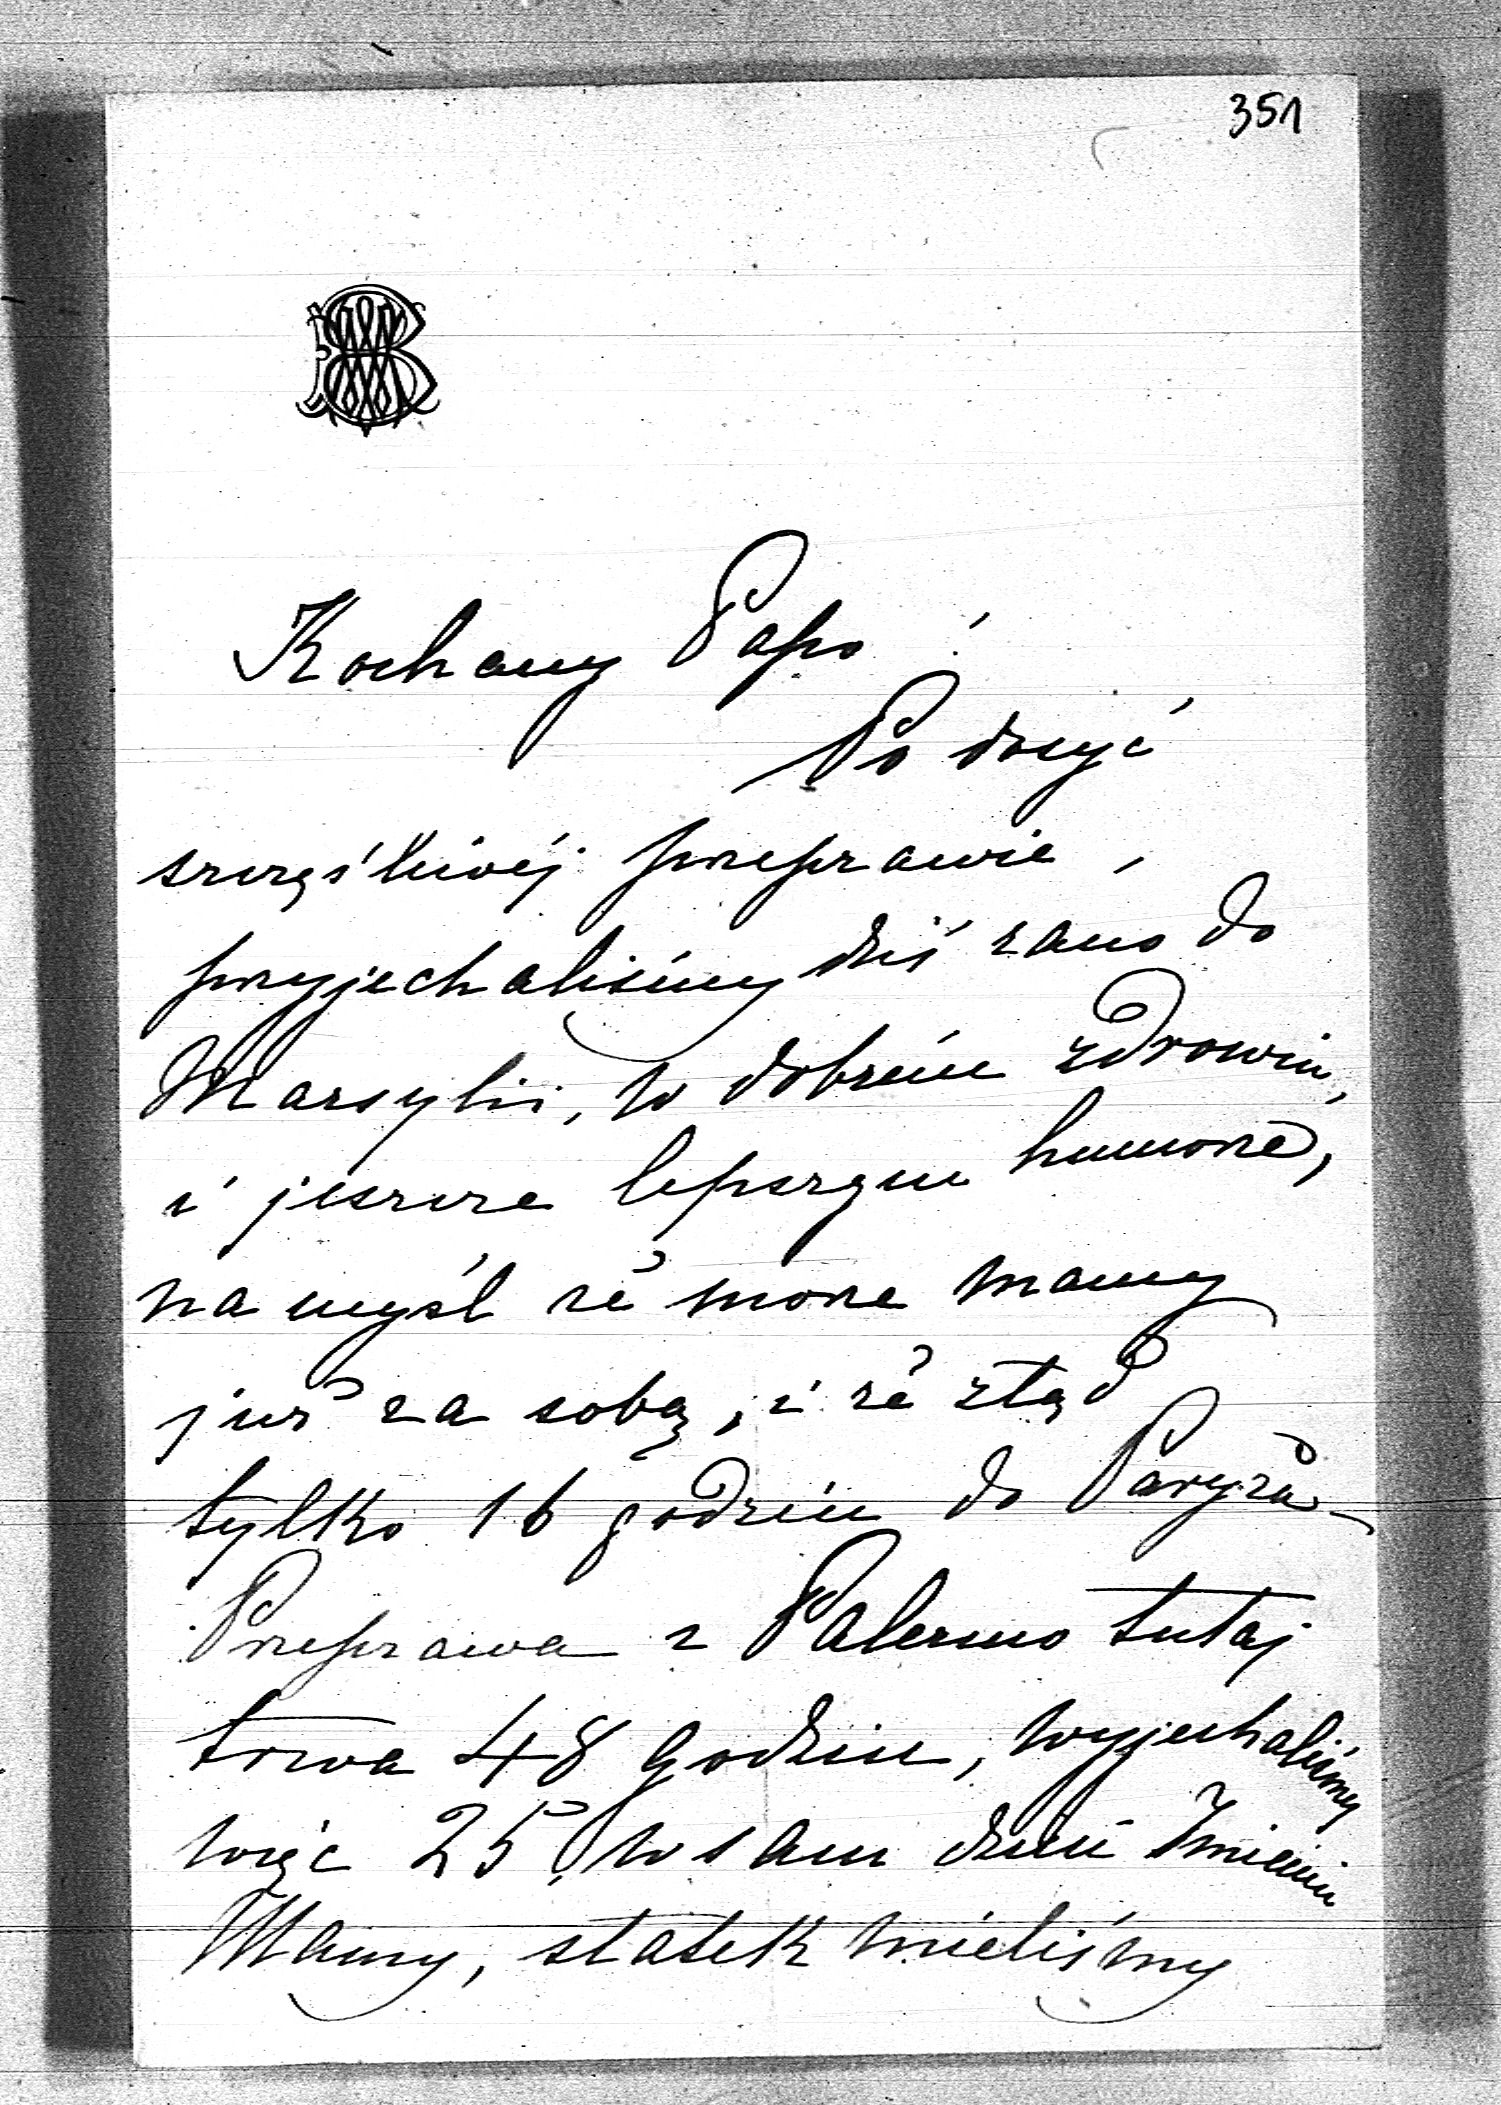 351
Kochany Papo!
Po dosyć
szczęśliwéj przeprawie,
przyjechaliśmy dziś rano do
Marsylii, w dobrém zdrowiu,
i jeszcze lepszym humorze,
na myśl że morze mamy
już za sobą, i że ztąd
tylko 16 godzin do Paryża_
Przeprawa z Palermo tutaj
trwa 48 godzin, wyjechaliśmy
więc 25º, w sam dzień Imienin
Mamy, statek mieliśmy